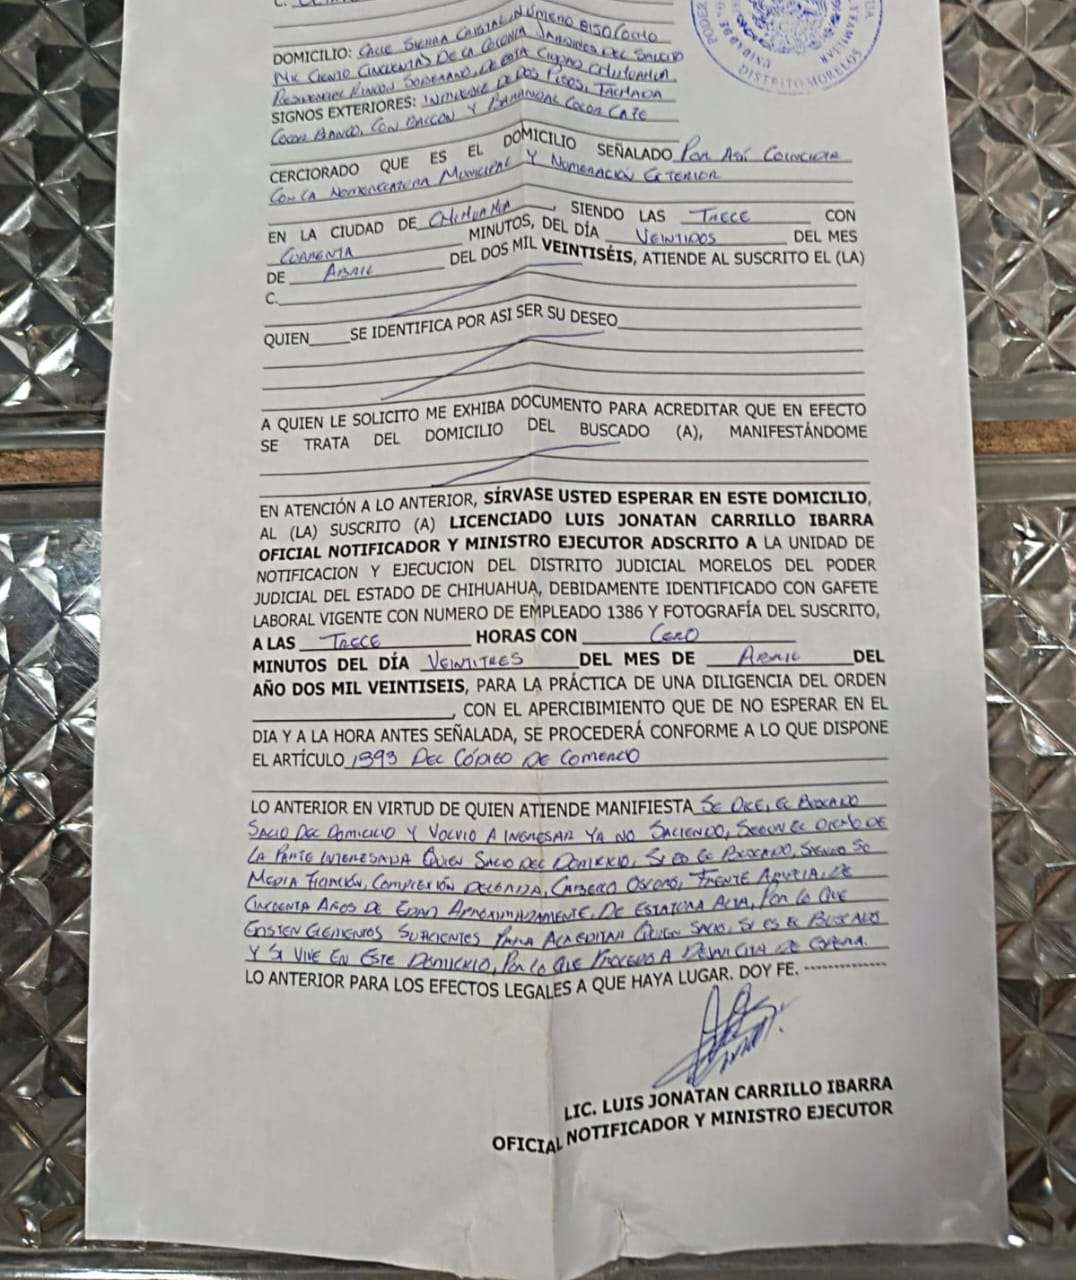 C.
DOMICILIO: CALLE SIERRA CRISTAL, NÚMERO 8150 (OCHO
MIL CIENTO CINCUENTA) DE LA COLONIA JARDINES DEL SAUCITO
RESIDENCIAL RINCON SOBERANO, DE ESTA CIUDAD CHIHUAHUA
SIGNOS EXTERIORES: INMUEBLE DE DOS PISOS, FACHADA
COLOR BLANCO, CON BALCON Y BARANDAL COLOR CAFE
CERCIORADO QUE ES EL DOMICILIO SEÑALADO POR ASÍ COINCIDIR
CON LA NOMENCLATURA MUNICIPAL Y NUMERACION EXTERIOR
EN LA CIUDAD DE CHIHUAHUA, SIENDO LAS TRECE CON
CUARENTA MINUTOS, DEL DÍA VEINTIDOS DEL MES
DE ABRIL DEL DOS MIL VEINTISÉIS, ATIENDE AL SUSCRITO EL (LA)
C.
QUIEN SE IDENTIFICA POR ASI SER SU DESEO
A QUIEN LE SOLICITO ME EXHIBA DOCUMENTO PARA ACREDITAR QUE EN EFECTO
SE TRATA DEL DOMICILIO DEL BUSCADO (A), MANIFESTÁNDOME
EN ATENCIÓN A LO ANTERIOR, SÍRVASE USTED ESPERAR EN ESTE DOMICILIO,
AL (LA) SUSCRITO (A) LICENCIADO LUIS JONATAN CARRILLO IBARRA
OFICIAL NOTIFICADOR Y MINISTRO EJECUTOR ADSCRITO A LA UNIDAD DE
NOTIFICACION Y EJECUCION DEL DISTRITO JUDICIAL MORELOS DEL PODER
JUDICIAL DEL ESTADO DE CHIHUAHUA, DEBIDAMENTE IDENTIFICADO CON GAFETE
LABORAL VIGENTE CON NUMERO DE EMPLEADO 1386 Y FOTOGRAFÍA DEL SUSCRITO,
A LAS TRECE HORAS CON CERO
MINUTOS DEL DÍA VEINTITRES DEL MES DE ABRIL DEL
AÑO DOS MIL VEINTISEIS, PARA LA PRÁCTICA DE UNA DILIGENCIA DEL ORDEN
, CON EL APERCIBIMIENTO QUE DE NO ESPERAR EN EL
DIA Y A LA HORA ANTES SEÑALADA, SE PROCEDERÁ CONFORME A LO QUE DISPONE
EL ARTÍCULO 1393 DEL CÓDIGO DE COMERCIO
LO ANTERIOR EN VIRTUD DE QUIEN ATIENDE MANIFIESTA SE DICE, EL BUSCADO
SALIO DEL DOMICILIO Y VOLVIO A INGRESAR YA NO SALIENDO, SEGUN EL DICHO DE
LA PARTE INTERESADA QUIEN SALIO DEL DOMICILIO, SI ES EL BUSCADO, SIENDO SU
MEDIA FILIACIÓN, COMPLEXIÓN DELGADA, CABELLO OSCURO, FRENTE AMPLIA, DE
CINCUENTA AÑOS DE EDAD APROXIMADAMENTE, DE ESTATURA ALTA, POR LO QUE
EXISTEN ELEMENTOS SUFICIENTES PARA ACREDITAR QUIEN SALIO, SI ES EL BUSCADO
Y SI VIVE EN ESTE DOMICILIO, POR LO QUE PROCEDO A DEJAR CITA DE ESPERA.
LO ANTERIOR PARA LOS EFECTOS LEGALES A QUE HAYA LUGAR. DOY FE. --------------
LIC. LUIS JONATAN CARRILLO IBARRA
OFICIAL NOTIFICADOR Y MINISTRO EJECUTOR
DISTRITO MORELOS